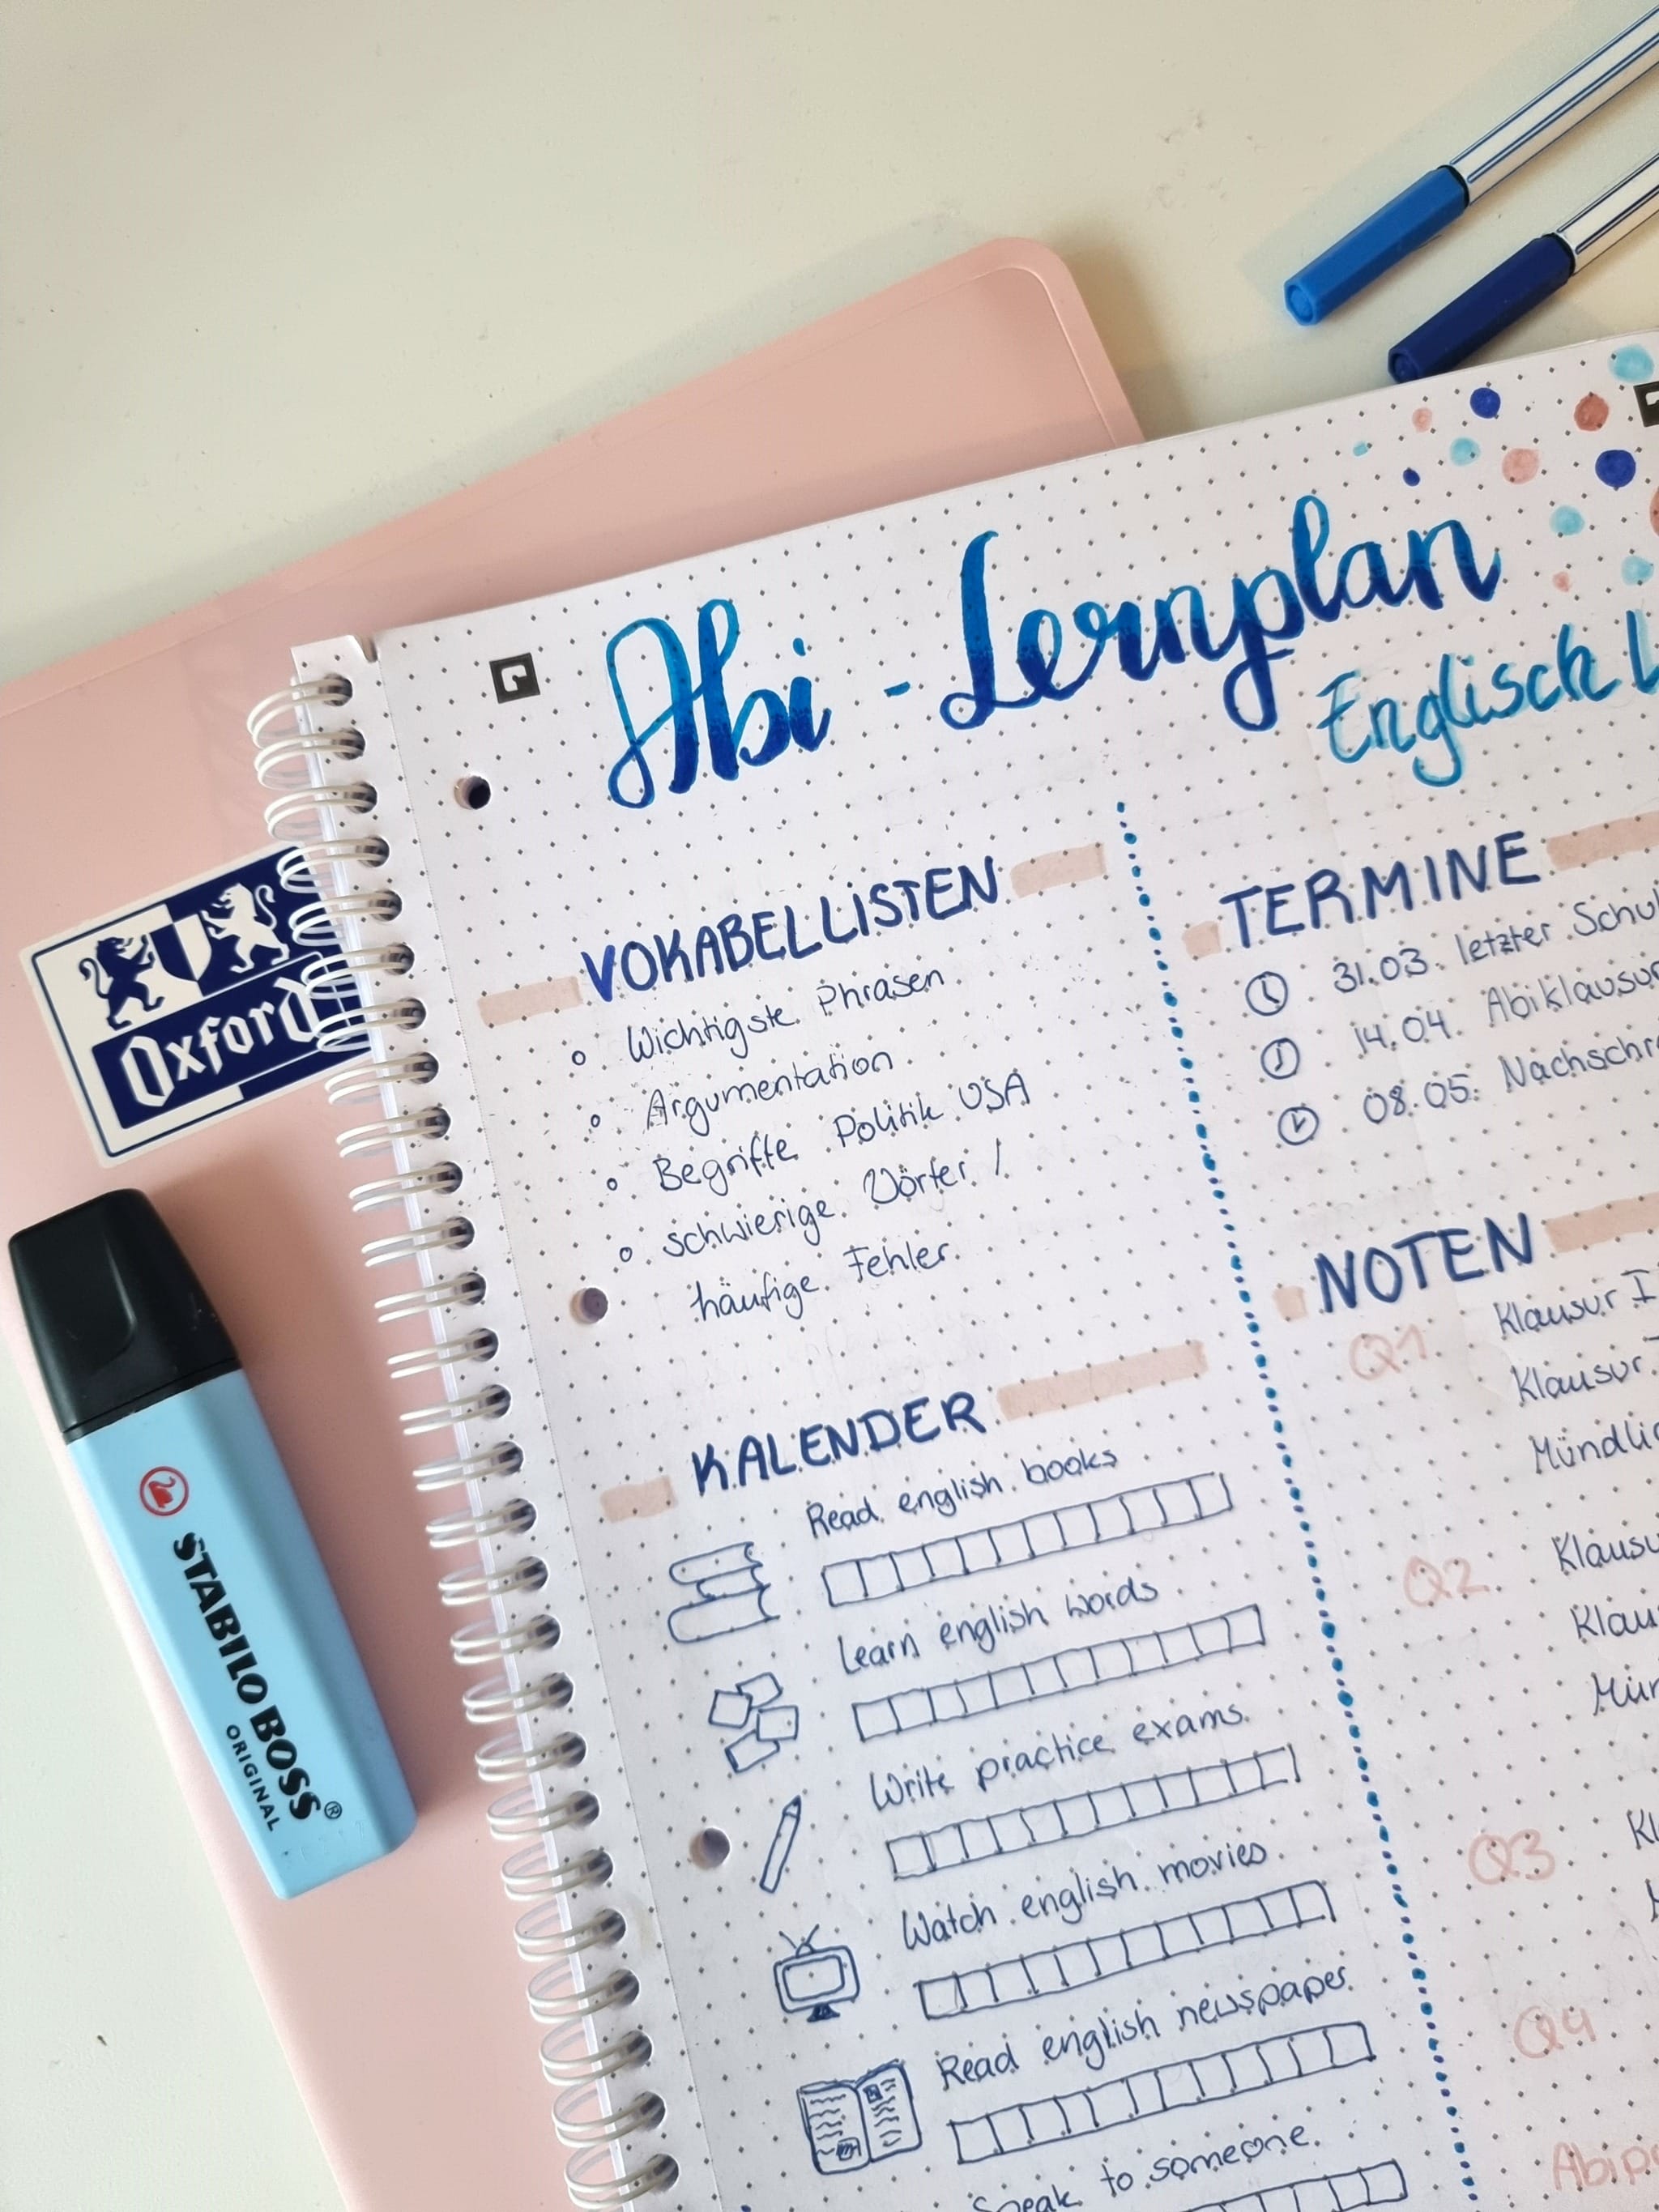 Abi - Lernplan
Englisch L
VOKABELLISTEN
Wichtigste Phrasen
Argumentation
Begriffe Politik USA
schwierige Wörter /
häufige Fehler
KALENDER
Read english books
Learn english words
Write practice exams
Watch english movies
Read english newspaper
Speak to someone
TERMINE
31.03. letzter Schul
14.04. Abiklausur
08.05. Nachschr
NOTEN
Q1 Klausur I
Klausur
Mündlic
Q2 Klausu
Klau
Mün
Q3 Kl
Q4
Abip
Oxford
STABILO BOSS®
ORIGINAL